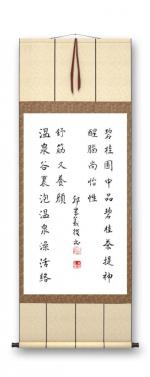 碧桂園中品碧桂養提神
醒腦尚怡性
溫泉谷裏泡溫泉澡活絡
舒筋又養顏